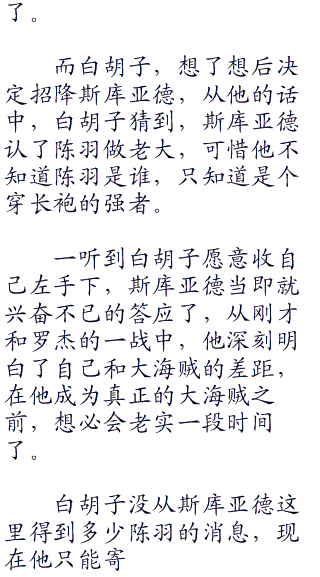 了。
而白胡子，想了想后决
定招降斯库亚德，从他的话
中，白胡子猜到，斯库亚德
认了陈羽做老大，可惜他不
知道陈羽是谁，只知道是个
穿长袍的强者。
一听到白胡子愿意收自
己左手下，斯库亚德当即就
兴奋不已的答应了，从刚才
和罗杰的一战中，他深刻明
白了自己和大海贼的差距，
在他成为真正的大海贼之
前，想必会老实一段时间
了。
白胡子没从斯库亚德这
里得到多少陈羽的消息，现
在他只能寄